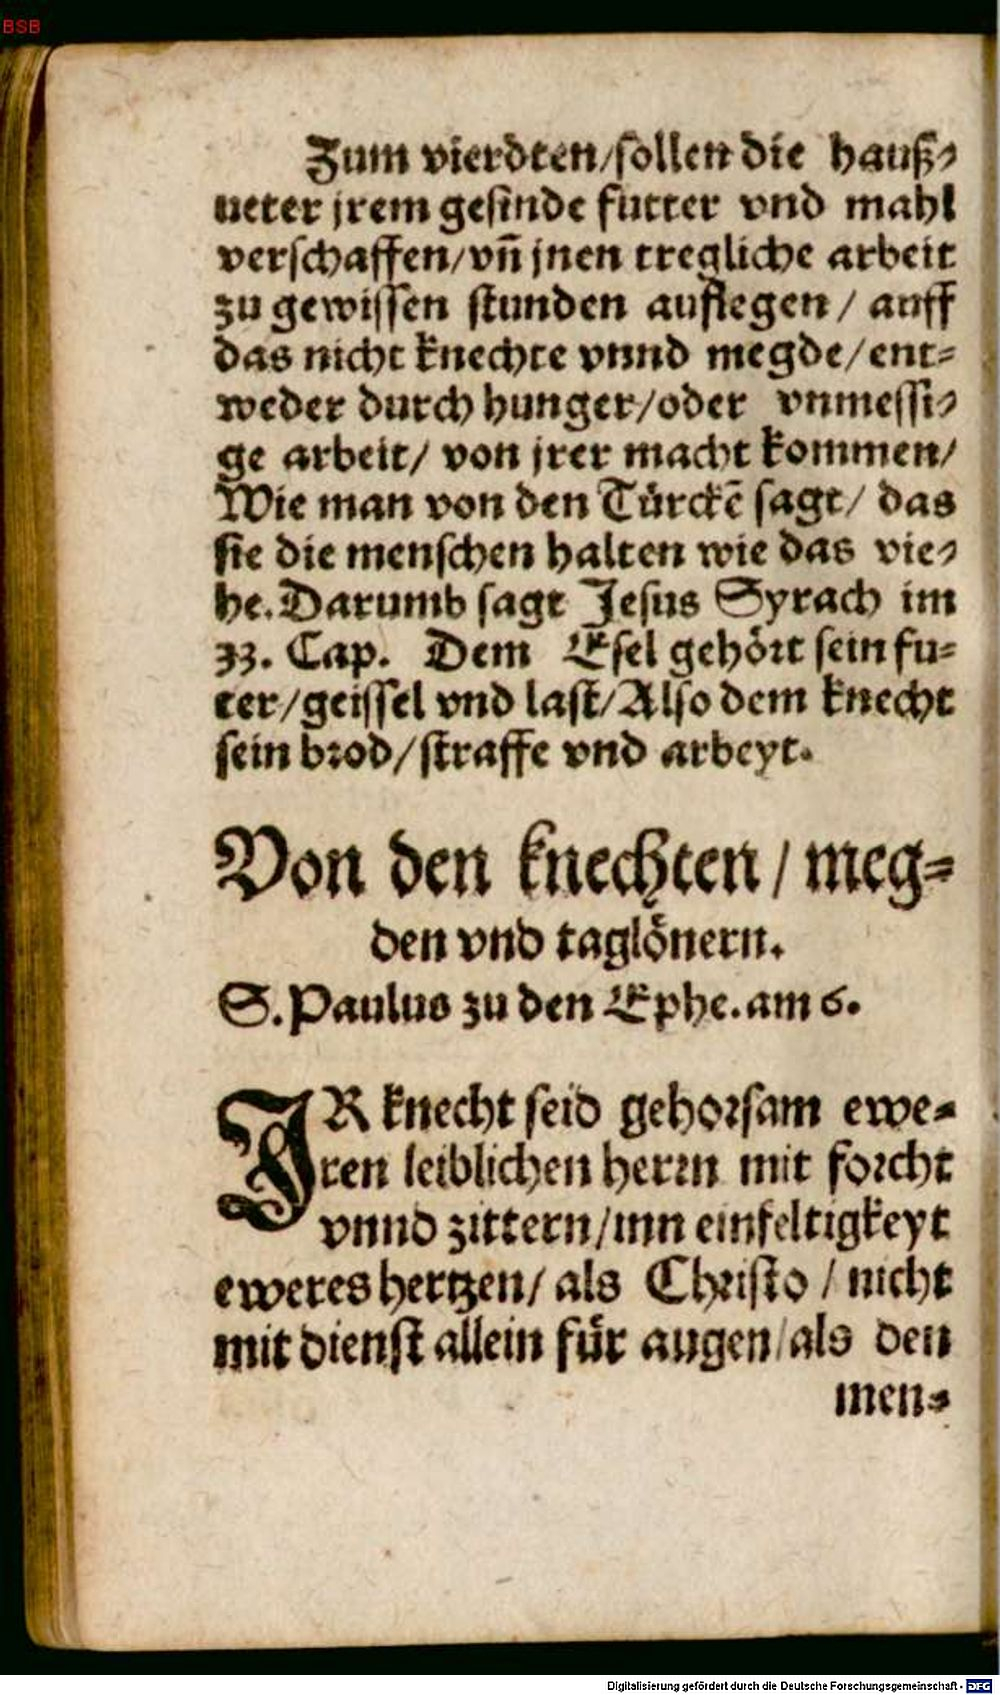 BSB
Zum vierdten/sollen die hauß-
ueter jrem gesinde futter vnd mahl
verschaffen/vn̄ jnen tregliche arbeit
zu gewissen stunden auflegen / auff
das nicht knechte vnnd megde/ent-
weder durch hunger/oder vnmessi-
ge arbeit/ von jrer macht kommen/
Wie man von den Türckē sagt/ das
sie die menschen halten wie das vie-
he. Darumb sagt Jesus Syrach im
33. Cap. Dem Esel gehört sein fu-
ter/geissel vnd last/Also dem knecht
sein brod/straffe vnd arbeyt.
Von den knechten / meg-
den vnd taglönern.
S. Paulus zu den Ephe. am 6.
IR knecht seid gehorsam ewe-
ren leiblichen herrn mit forcht
vnnd zittern/inn einfeltigkeyt
eweres hertzen/ als Christo / nicht
mit dienst allein für augen/als den
men-
Digitalisierung gefördert durch die Deutsche Forschungsgemeinschaft - DFG